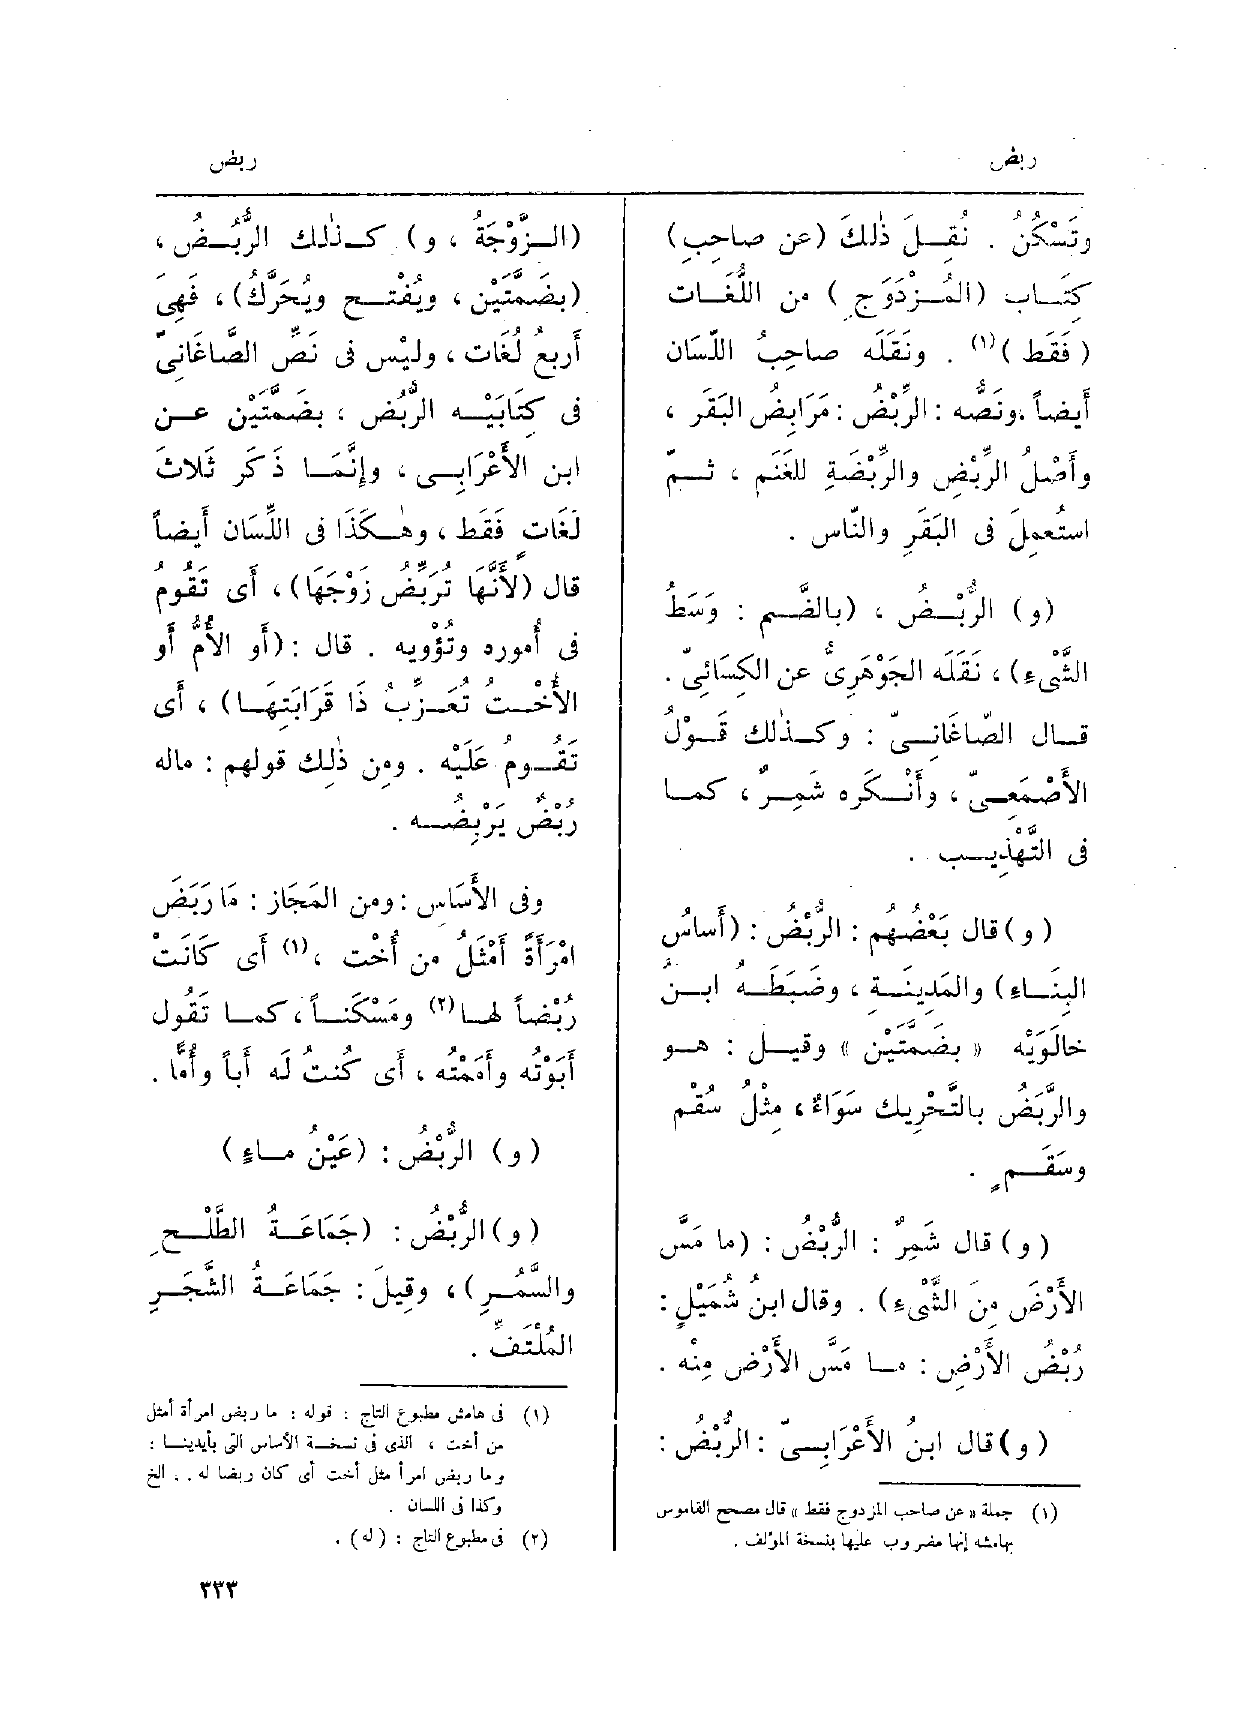 ربض
ربض
وتَسْكُنُ . نُقِــلَ ذٰلِكَ (عن صاحِبِ)
كِتَــاب (المُــزْدَوَجِ ) من اللُّغَــات
( فَقَط )(١) . ونَقَلَه صاحِبُ اللّسَان
أَيضاً ،ونَصُّه : الرِّبْضُ : مَرَابِضُ البَقَر ،
وأَصْلُ الرِّبْضِ والرِّبْضَةِ للغَنَمِ ، ثــمّ
استُعمِلَ فى البَقَرِ والنّاس .
(و) الرُّبْــضُ ، (بالضَّــم : وَسَطُ
الشَّىءِ) ، نَقَلَه الجَوْهَرِىُّ عن الكِسَائِىّ .
قــال الصّاغَانِــىّ : وكــذٰلك قَــوْلُ
الأَصْمَعِــىّ ، وأَنْــكَره شَمِــرٌ ، كمــا
فى التَّهْذِيــب .
( و ) قال بَعْضُهُم : الرُّبْضُ : (أَساسُ
البِنَــاءِ) والمَدِينَــة ، وضَبَطَــهُ ابــن
خالَوَيْه « بضَمَّتَيْن » وقِيــل : هــو
والرَّبَضُ بالتَّحْرِيك سَوَاءٌ ، مِثْلُ سُقْم
وسَقَــمٍ .
( و ) قال شَمِرٌ : الرُّبْضُ : (ما مَسَّ
الأَرْضَ مِن الشَّىءِ) . وقال ابنُ شُمَيْلٍ :
رُبْضُ الأَرْضِ : مــا مَسَّ الأَرْضَ مِنْه .
( و ) قال ابنُ الأَعْرَابِــىّ : الرُّبْضُ :
(١) جملة « عن صاحب المزدوج فقط » قال مصحح القاموس
بهامشه إنها مضروب عليها بنسخة المؤلف .
(الــزَّوْجَةُ ، و) كــذٰلك الرُّبُــضُ ،
(بضَمَّتَيْن ، ويُفْتَــح ويُحَرَّكُ) ، فَهِىَ
أَربعُ لُغَات ، وليْس فى نَصِّ الصَّاغَانِىّ
فى كِتَابَيْــه الرُّبُض ، بضَمَّتَيْن عــن
ابن الأَعْرَابِــى ، وإِنَّمَــا ذَكَر ثَلاثَ
لُغَات فَقَط ، وهٰــكَذَا فى اللِّسَان أَيضاً
قال (لأَنَّهَا تُرَبِّضُ زَوْجَهَا) ، أَى تَقُومُ
فى أُموره وتُؤْويه . قال : (أَو الأُمُّ أَو
الأُخْــتُ تُعَــزِّبُ ذَا قَرَابَتِهَــا) ، أَى
تَقُــومُ عَلَيْه . ومِن ذٰلِك قولُهم : ماله
رُبْضٌ يَرْبِضُــه .
وفى الأَسَاس : ومن المَجَاز : مَا رَبَضَ
امْرَأَةً أَمْثَلُ من أُخْت ،(١) أَى كَانَتْ
رُبْضاً لهــا(٢) ومَسْكَنــاً ، كمــا تَقُول
أَبَوْتُه وأَمَمْتُه ، أَى كُنتُ لَه أَباً وأُمّاً .
( و ) الرُّبْضُ : (عَيْنُ مــاءٍ)
( و ) الرُّبْضُ : (جَمَاعَــةُ الطَّلْــحِ
والسَّمُــرِ) ، وقِيلَ : جَمَاعَــةُ الشَّجَــرِ
المُلْتَفِّ .
(١) فى هامش مطبوع التاج : قوله : ما ربض امرأة أمثل
من أخت ، الذى فى نسخــة الأساس التى بأيدينــا :
وما ربض امرأ مثل أخت أى كان ربضا له . . الخ
وكذا فى اللسان .
(٢) فى مطبوع التاج : (له) .
٣٣٣